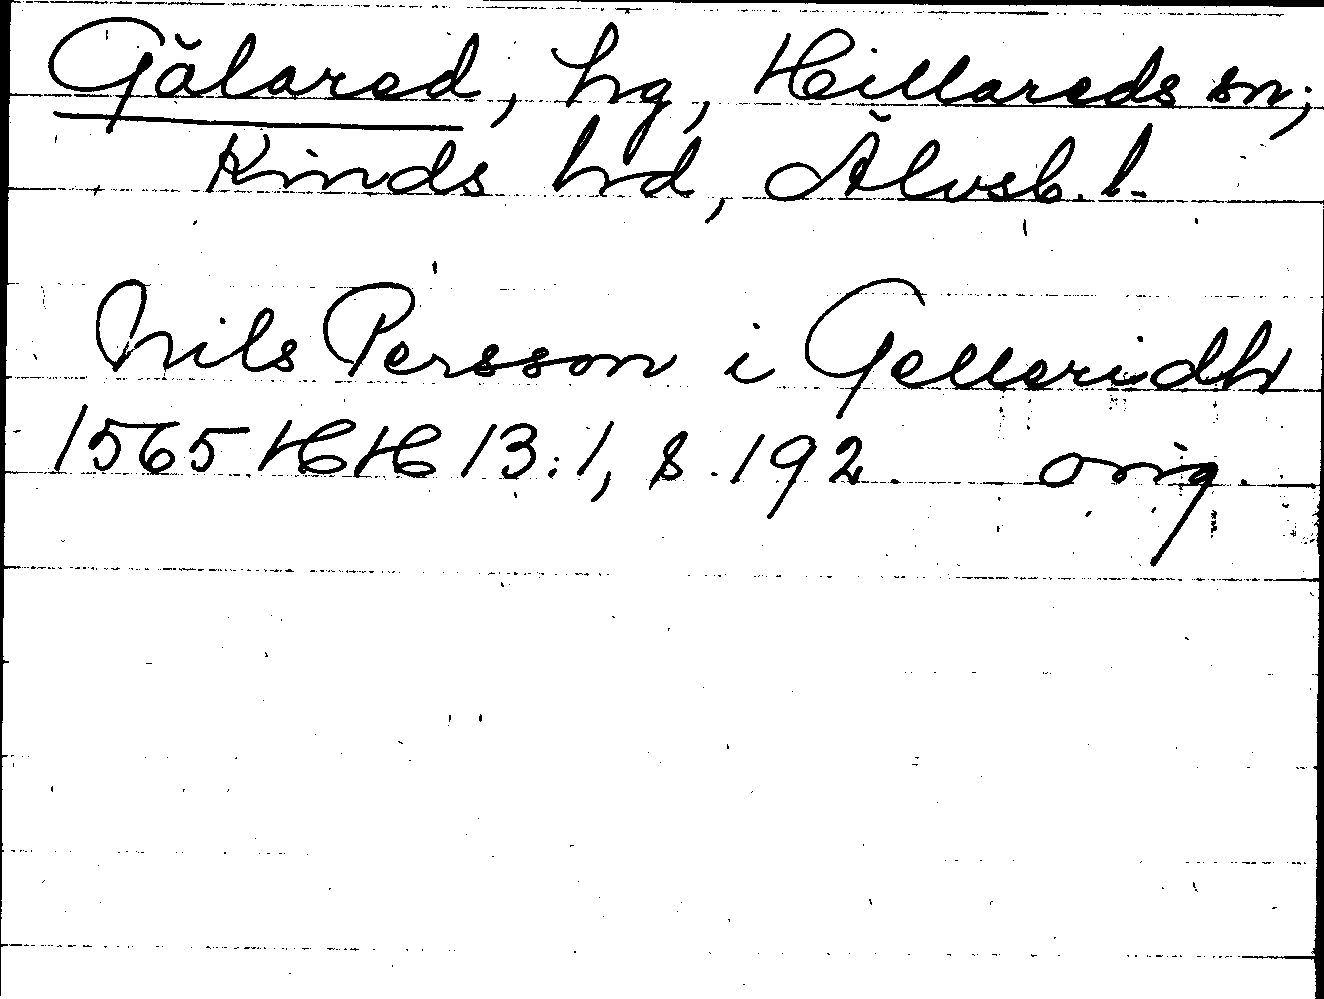 Gälared, hg, Hillareds sn;
Kinds hd, Älvsb. l.
Nils Persson i Gelleridh
1565 HH 13:1, s. 192. orig.